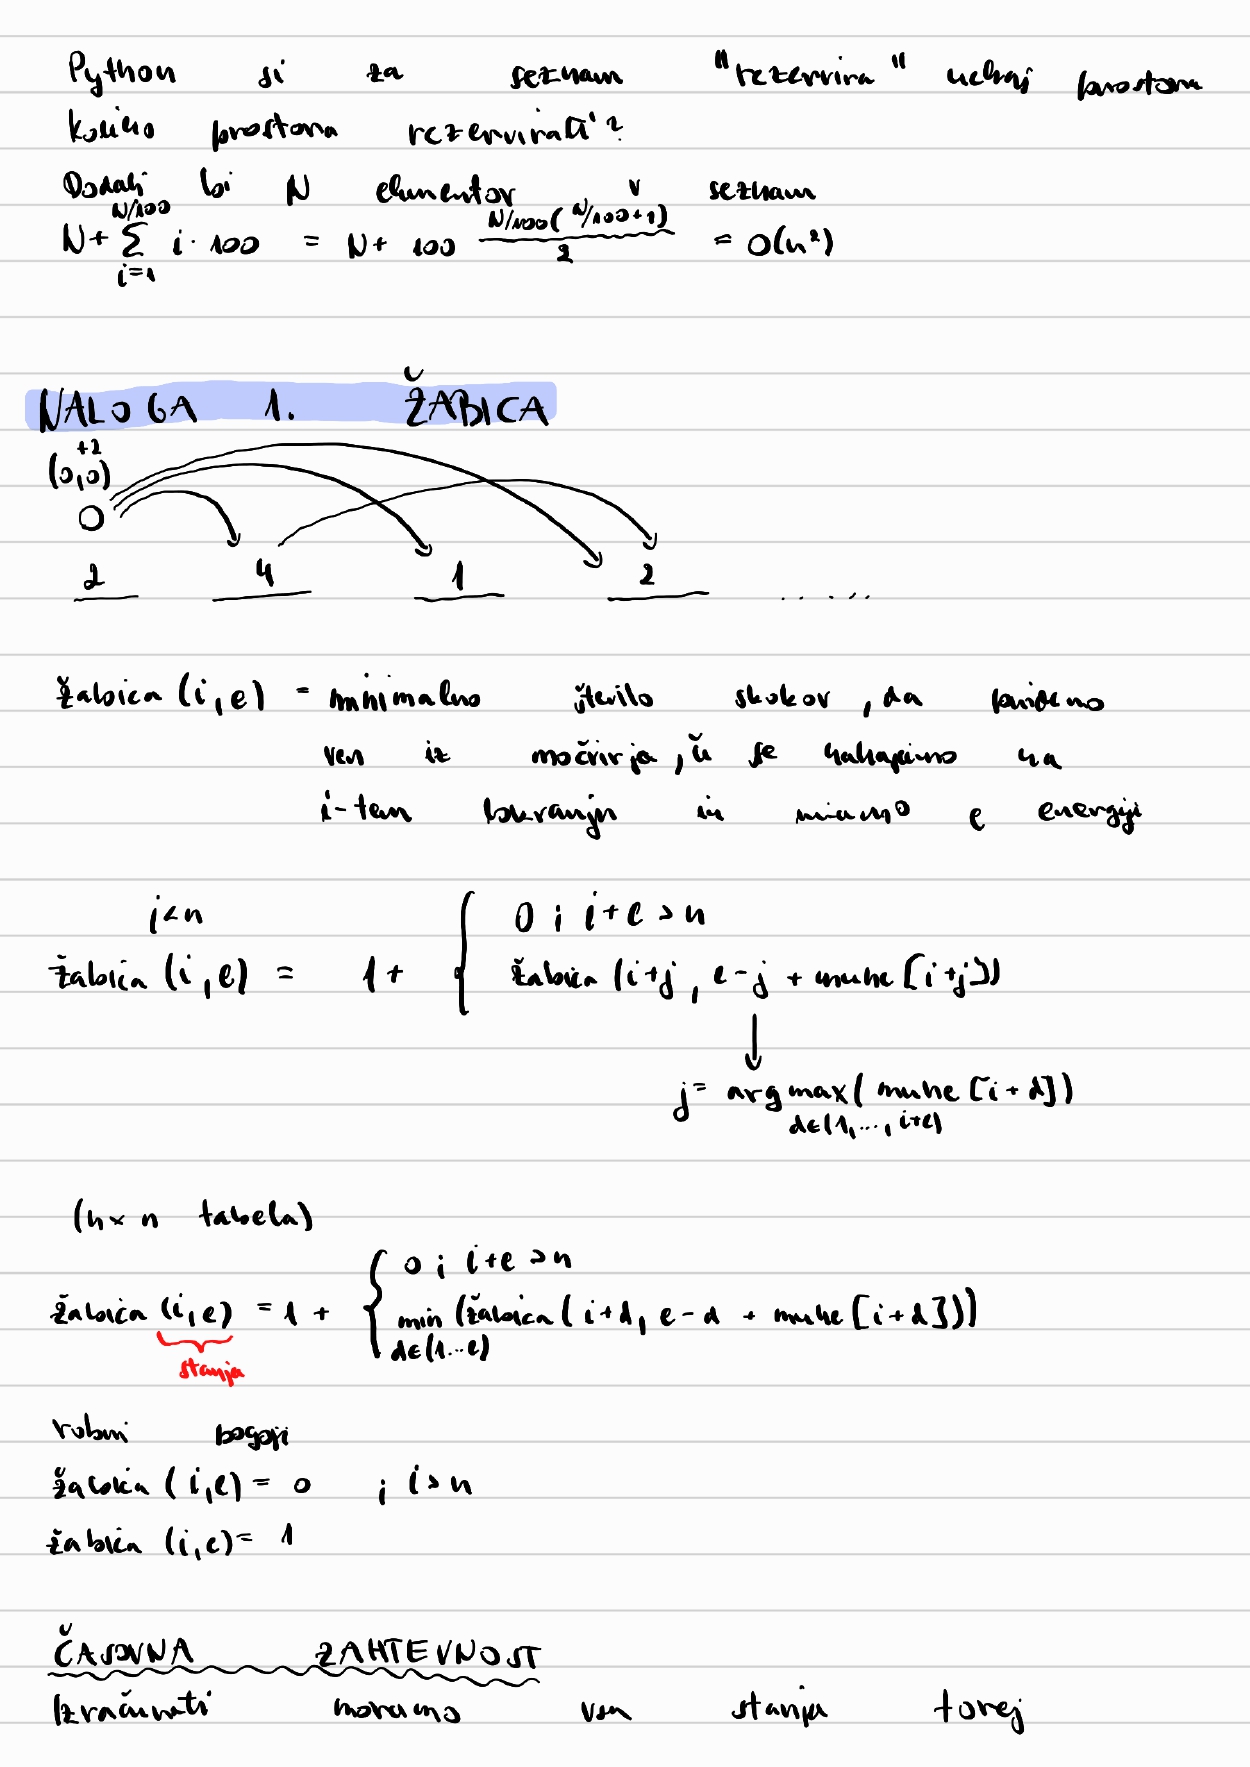 Python si za seznam "rezervira" nekaj prostora
Koliko prostora rezervirati?
Dodali bi N elementov v seznam
N + \sum_{i=1}^{N/100} i · 100 = N + 100 \frac{N/100(N/100+1)}{2} = O(n²)
NALOGA 1. ŽABICA
+2
(0,0)
0
2 4 1 2 .....
žabica (i,e) = minimalno število skokov, da pridemo
ven iz močvirja, če se nahajamo na
i-tem lokvanju in imamo e energiji
i<n
0 ; i+e > n
žabica (i,e) = 1 + { žabica (i+j, e-j + muhe[i+j])
↓
j = argmax(muhe[i+d])
d∈(1,..., i+e)
(n × n tabela)
0 ; i+e > n
žabica (i,e) = 1 + { min (žabica(i+d, e-d + muhe[i+d]))
d∈(1...e)
stanja
robni pogoji
žabica (i,e) = 0 ; i>n
žabica (i,e) = 1
ČASOVNA ZAHTEVNOST
Izračunati moramo vsa stanja torej